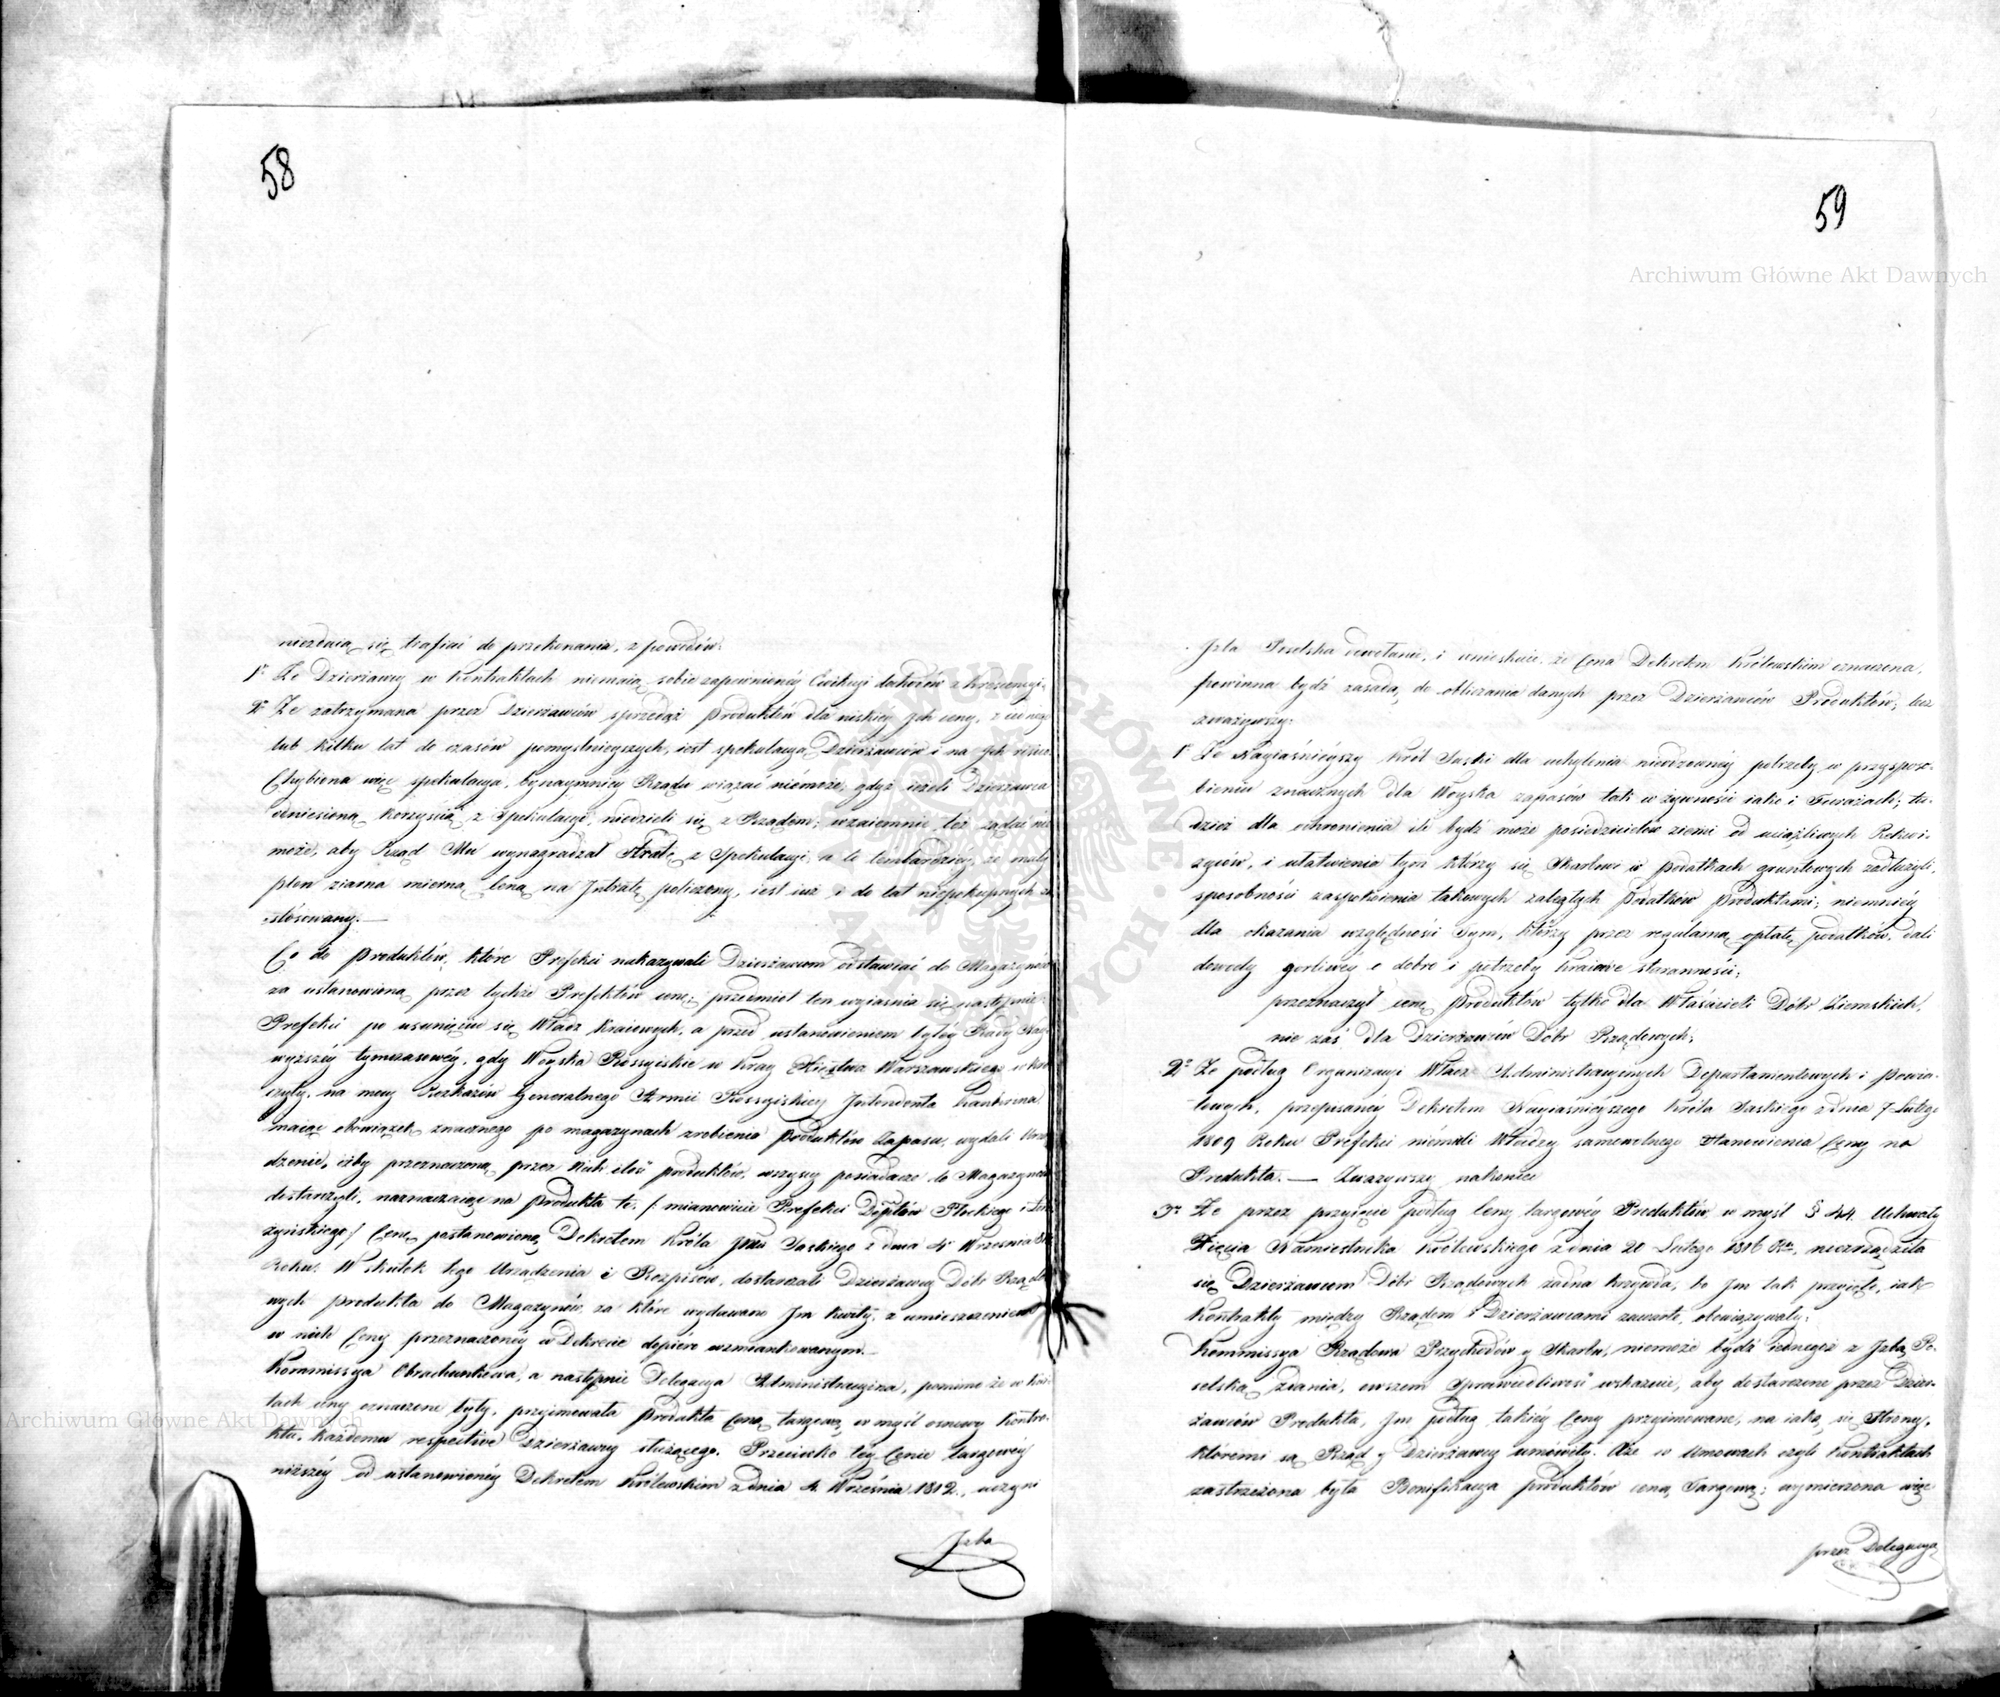 58
niezdaią się trafiać do przekonania, z powodów:
1º Że Dzierżawcy w Kontraktach niemaią sobie zapewnionéy Ewikcyi dochodów z krescencyi.
2º Że zatrzymana przez Dzierżawców sprzedaż Produktów dla niskiéy Ich ceny, z
lub kilku lat do czasów pomyślnieyszych, iest spekulacyą Dzierżawców i na Ich
Chybiona więc spekulacya, bynaymniéy Rządu wiązać niemoże, gdyż ieżeli Dzierżawca
odniesioną korzyścią z Spekulacyi, niedzieli się z Rządem; wzaiemnie też żądać nie
może, aby Rząd Mu wynagradzał Stratę z Spekulacyi, a to tembardziéy, że mały
plon ziarna mierną Ceną na Intratę policzony, iest iuż i do lat niepokupnych
stosowany.—
Co do Produktów, które Prefekci nakazywali Dzierżawcom odstawiać do Magazynów
za ustanowioną przez tychże Prefektów cenę; przedmiot ten wyiaśnia się następnie:
Prefekci po usunięciu się Władz Kraiowych, a przed ustanowieniem byłéy Rady Nay-
wyższéy tymczasowéy, gdy Woyska Rossyiskie w Kray Xięstwa Warszawskiego wkro-
czyły, na mocy Rozkazów Generalnego Armii Rossyiskiéy Intendenta Kankrina
maiąc obowiązek znacznego po magazynach zrobienia Produktów Zapasu, wydali Urzą-
dzenie, iżby przeznaczoną przez Nich ilość produktów, wszyscy posiadacze do Magazynów
dostarczyli, naznaczaiąc na Produkta te, /: mianowicie Prefekci Depttów Płockiego i Łom-
żyńskiego/ Cenę postanowioną Dekretem Króla Jmci Saskiego z dnia 4º Września
Roku. W skutek tego Urządzenia i Rozpisów, dostarczali Dzierżawcy Dóbr Rządo-
wych produkta do Magazynów, za które wydawano Im kwity, z umieszczeniem
w nich Ceny przeznaczonéy w Dekrecie dopiéro wzmiankowanym.—
Kommissya Obrachunkowa, a następnie Delegacya Administracyina, pomimo że w kwi-
tach ceny oznaczone były, przyimowała Produkta Ceną targową w myśl osnowy Kontra-
ktu, każdemu respective Dzierżawcy służącego. Przeciwko téy Cenie targowéy
niższéy od ustanowionéy Dekretem Królewskim z dnia 4. Września 1812., uczyni
Izba
59
Izba Poselska odwołanie, i wnioskuie, że Cena Dekretem Królewskim oznaczona,
powinna bydź zasadą do obliczania danych przez Dzierżawców Produktów; lecz
zważywszy:
1º Że Nayiaśnieyszy Król Saski dla uchylenia niezdzownéy potrzeby w przysposo-
bieniu znacznych dla Woyska zapasów tak w żywności iako i Furażach; tu-
dzież dla ochronienia ile bydź może posiedzicielów ziemi od uciążliwych Rekwi-
zycyiów, i ułatwienia tym którzy się Skarbowi w Podatkach gruntowych zadłużyli,
sposobności zaspokoienia takowych zaległych Podatków Produktami; niemniéy
dla okazania względności Tym, którzy przez regularną opłatę podatków, dali
dowody gorliwéy o dobro i potrzeby kraiowe staranności;
przeznaczył cenę Produktów tylko dla Właścicieli Dóbr Ziemskich,
nie zaś dla Dzierżawców Dóbr Rządowych;
2º Że podług Organizacyi Władz Administracyinych Departamentowych i Powia-
towych, przepisanéy Dekretem Nayiaśnieyszego Króla Saskiego z dnia 7. Lutego
1809 Roku Prefekci niemieli Władzy samowolnego stanowienia Ceny na
Produkta.— Zważywszy nakoniec
3º Że przez przyięcie podług Ceny targowéy Produktów w myśl § 44. Uchwały
Xięcia Namiestnika Królewskiego z dnia 20 Lutego 1816 Ru, niezrządziła
się Dzierżawcom Dóbr Rządowych żadna krzywda, bo Im tak przyięto, iak
Kontrakty między Rządem i Dzierżawcami zawarte, obowiązywały;
Kommissya Rządowa Przychodów y Skarbu, niemoże bydź iednegoż z Izbą Po-
selską zdania, owszem Sprawiedliwość wskazuie, aby dostarczone przez Dzier-
żawców Produkta, Im podług takiéy Ceny przyimowane, na iaką się Strony,
któremi są Rząd y Dzierżawcy umówiły. Aże w Umowach czyli Kontraktach
zastrzeżona była Bonifikacya produktów ceną Targową; wymierzona więc
przez Delegacyą
Archiwum Główne Akt Dawnych
Archiwum Główne Akt Dawnych